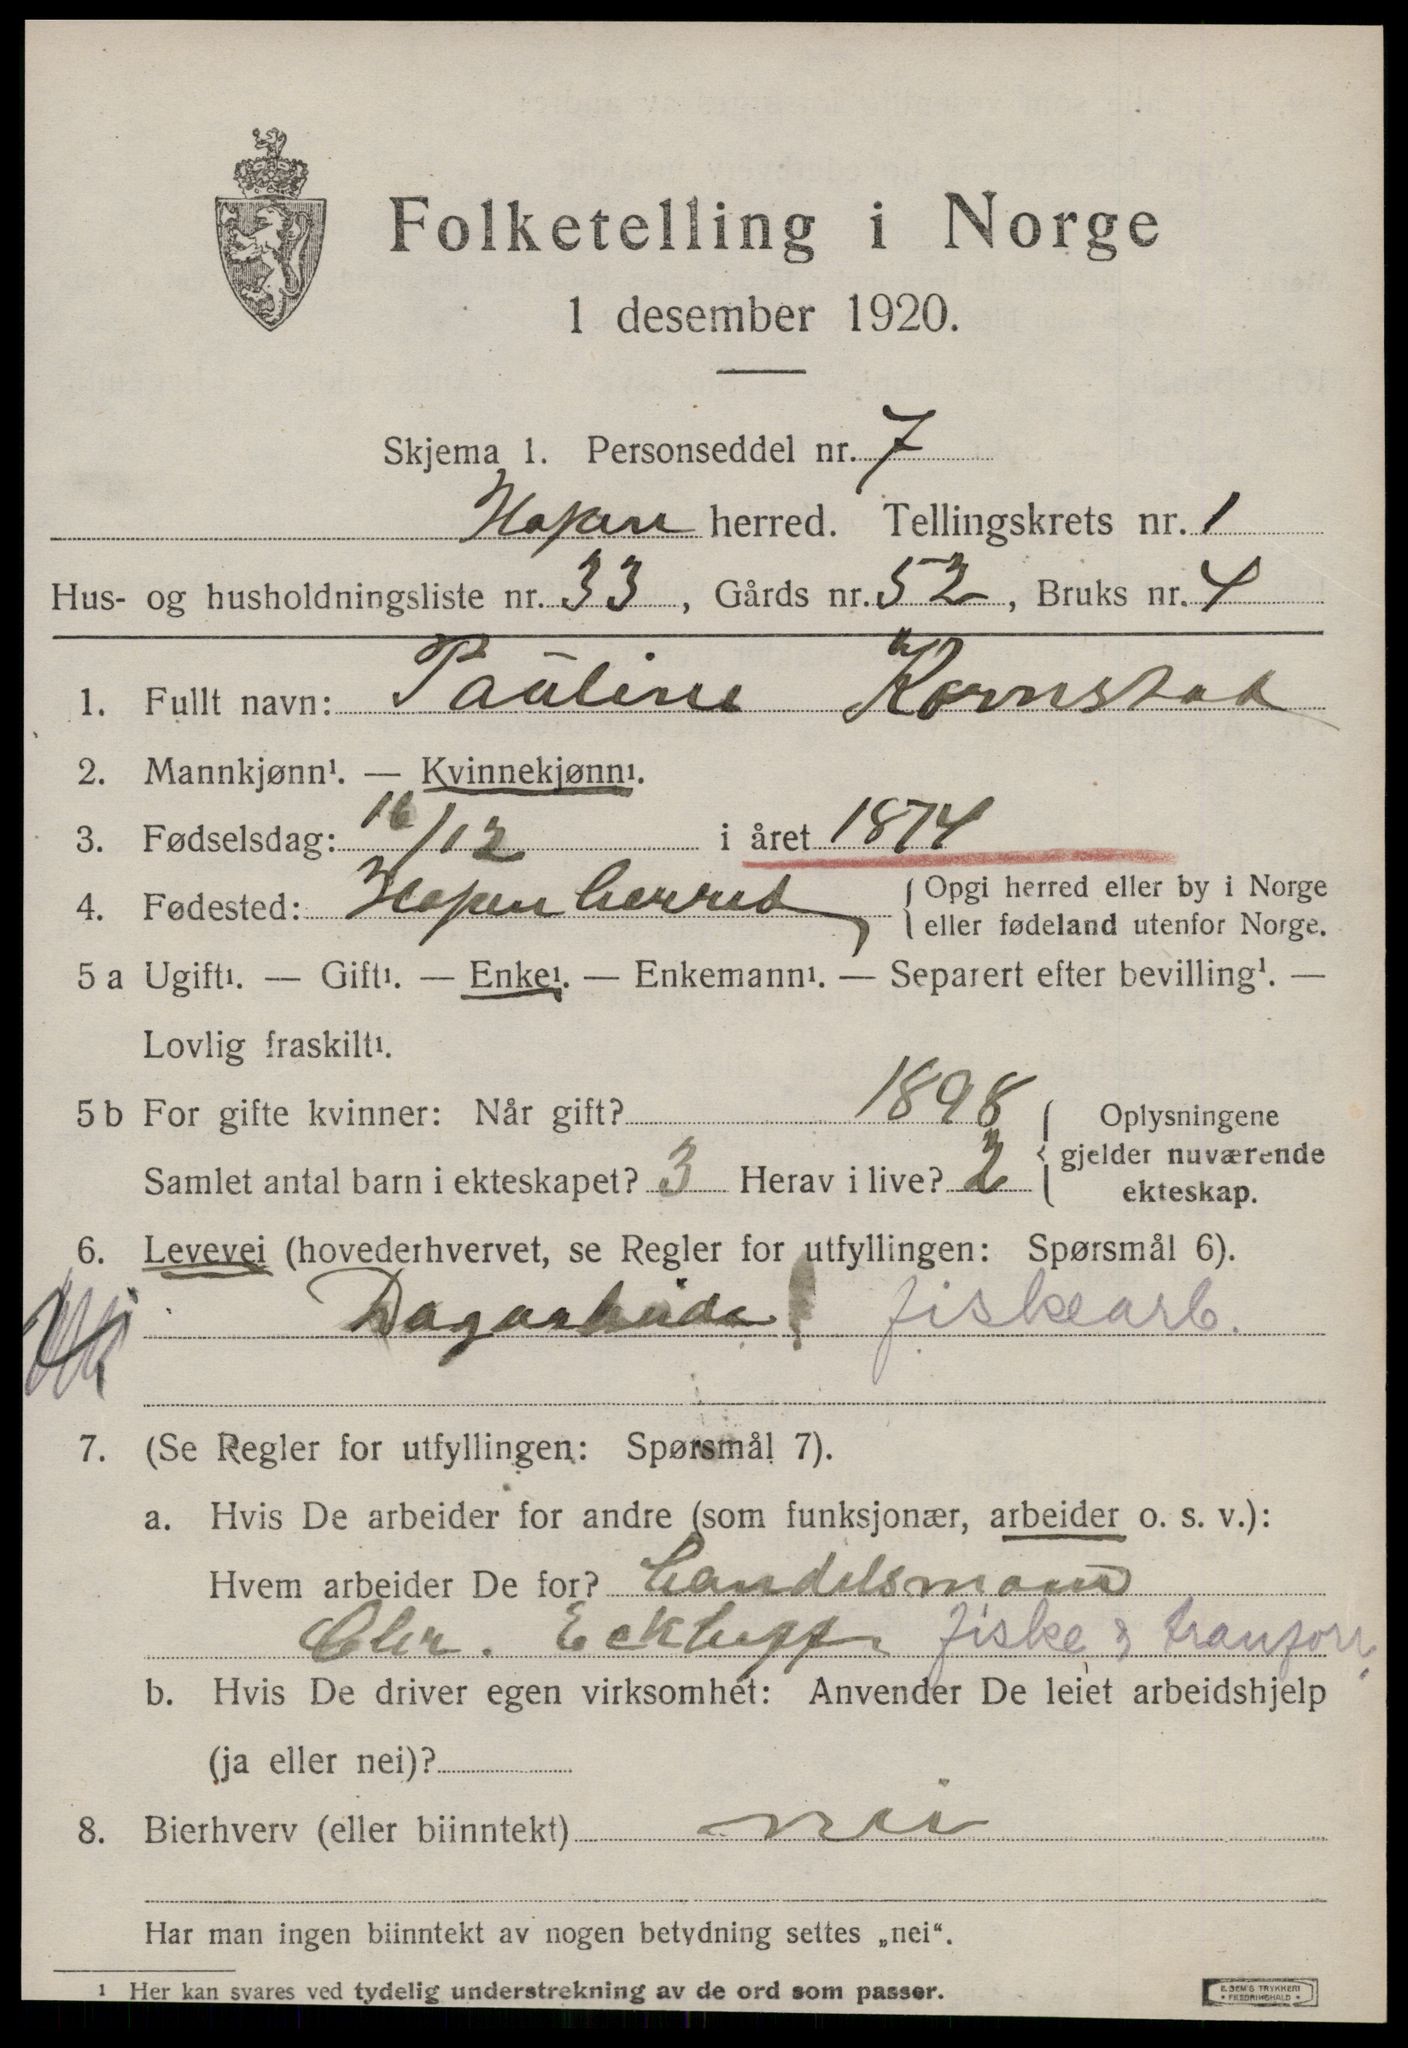 Folketelling i Norge
1 desember 1920.
Skjema 1. Personseddel nr. 7
Hopen herred. Tellingskrets nr. 1
Hus- og husholdningsliste nr. 33, Gårds nr. 52, Bruks nr. 4
1. Fullt navn: Pauline Kornstad
2. Mannkjønn¹. — Kvinnekjønn¹.
3. Fødselsdag: 16/12 i året 1874
4. Fødested: Hopen herred { Opgi herred eller by i Norge
eller fødeland utenfor Norge.
5 a Ugift¹. — Gift¹. — Enke¹. — Enkemann¹. — Separert efter bevilling¹. —
Lovlig fraskilt¹.
5 b For gifte kvinner: Når gift? 1898
Samlet antal barn i ekteskapet? 3 Herav i live? 2
{ Oplysningene
gjelder nuværende
ekteskap.
6. Levevei (hovederhvervet, se Regler for utfyllingen: Spørsmål 6).
Dagarbeide fiskearb.
7. (Se Regler for utfyllingen: Spørsmål 7).
a. Hvis De arbeider for andre (som funksjonær, arbeider o. s. v.):
Hvem arbeider De for? Handelsmann
Chr. Eckhoff fiske & tranforr.
b. Hvis De driver egen virksomhet: Anvender De leiet arbeidshjelp
(ja eller nei)?
8. Bierhverv (eller biinntekt) nei
Har man ingen biinntekt av nogen betydning settes „nei“.
¹ Her kan svares ved tydelig understrekning av de ord som passer.
E. SEM'S TRYKKERI
• FREDRIKSHALD •